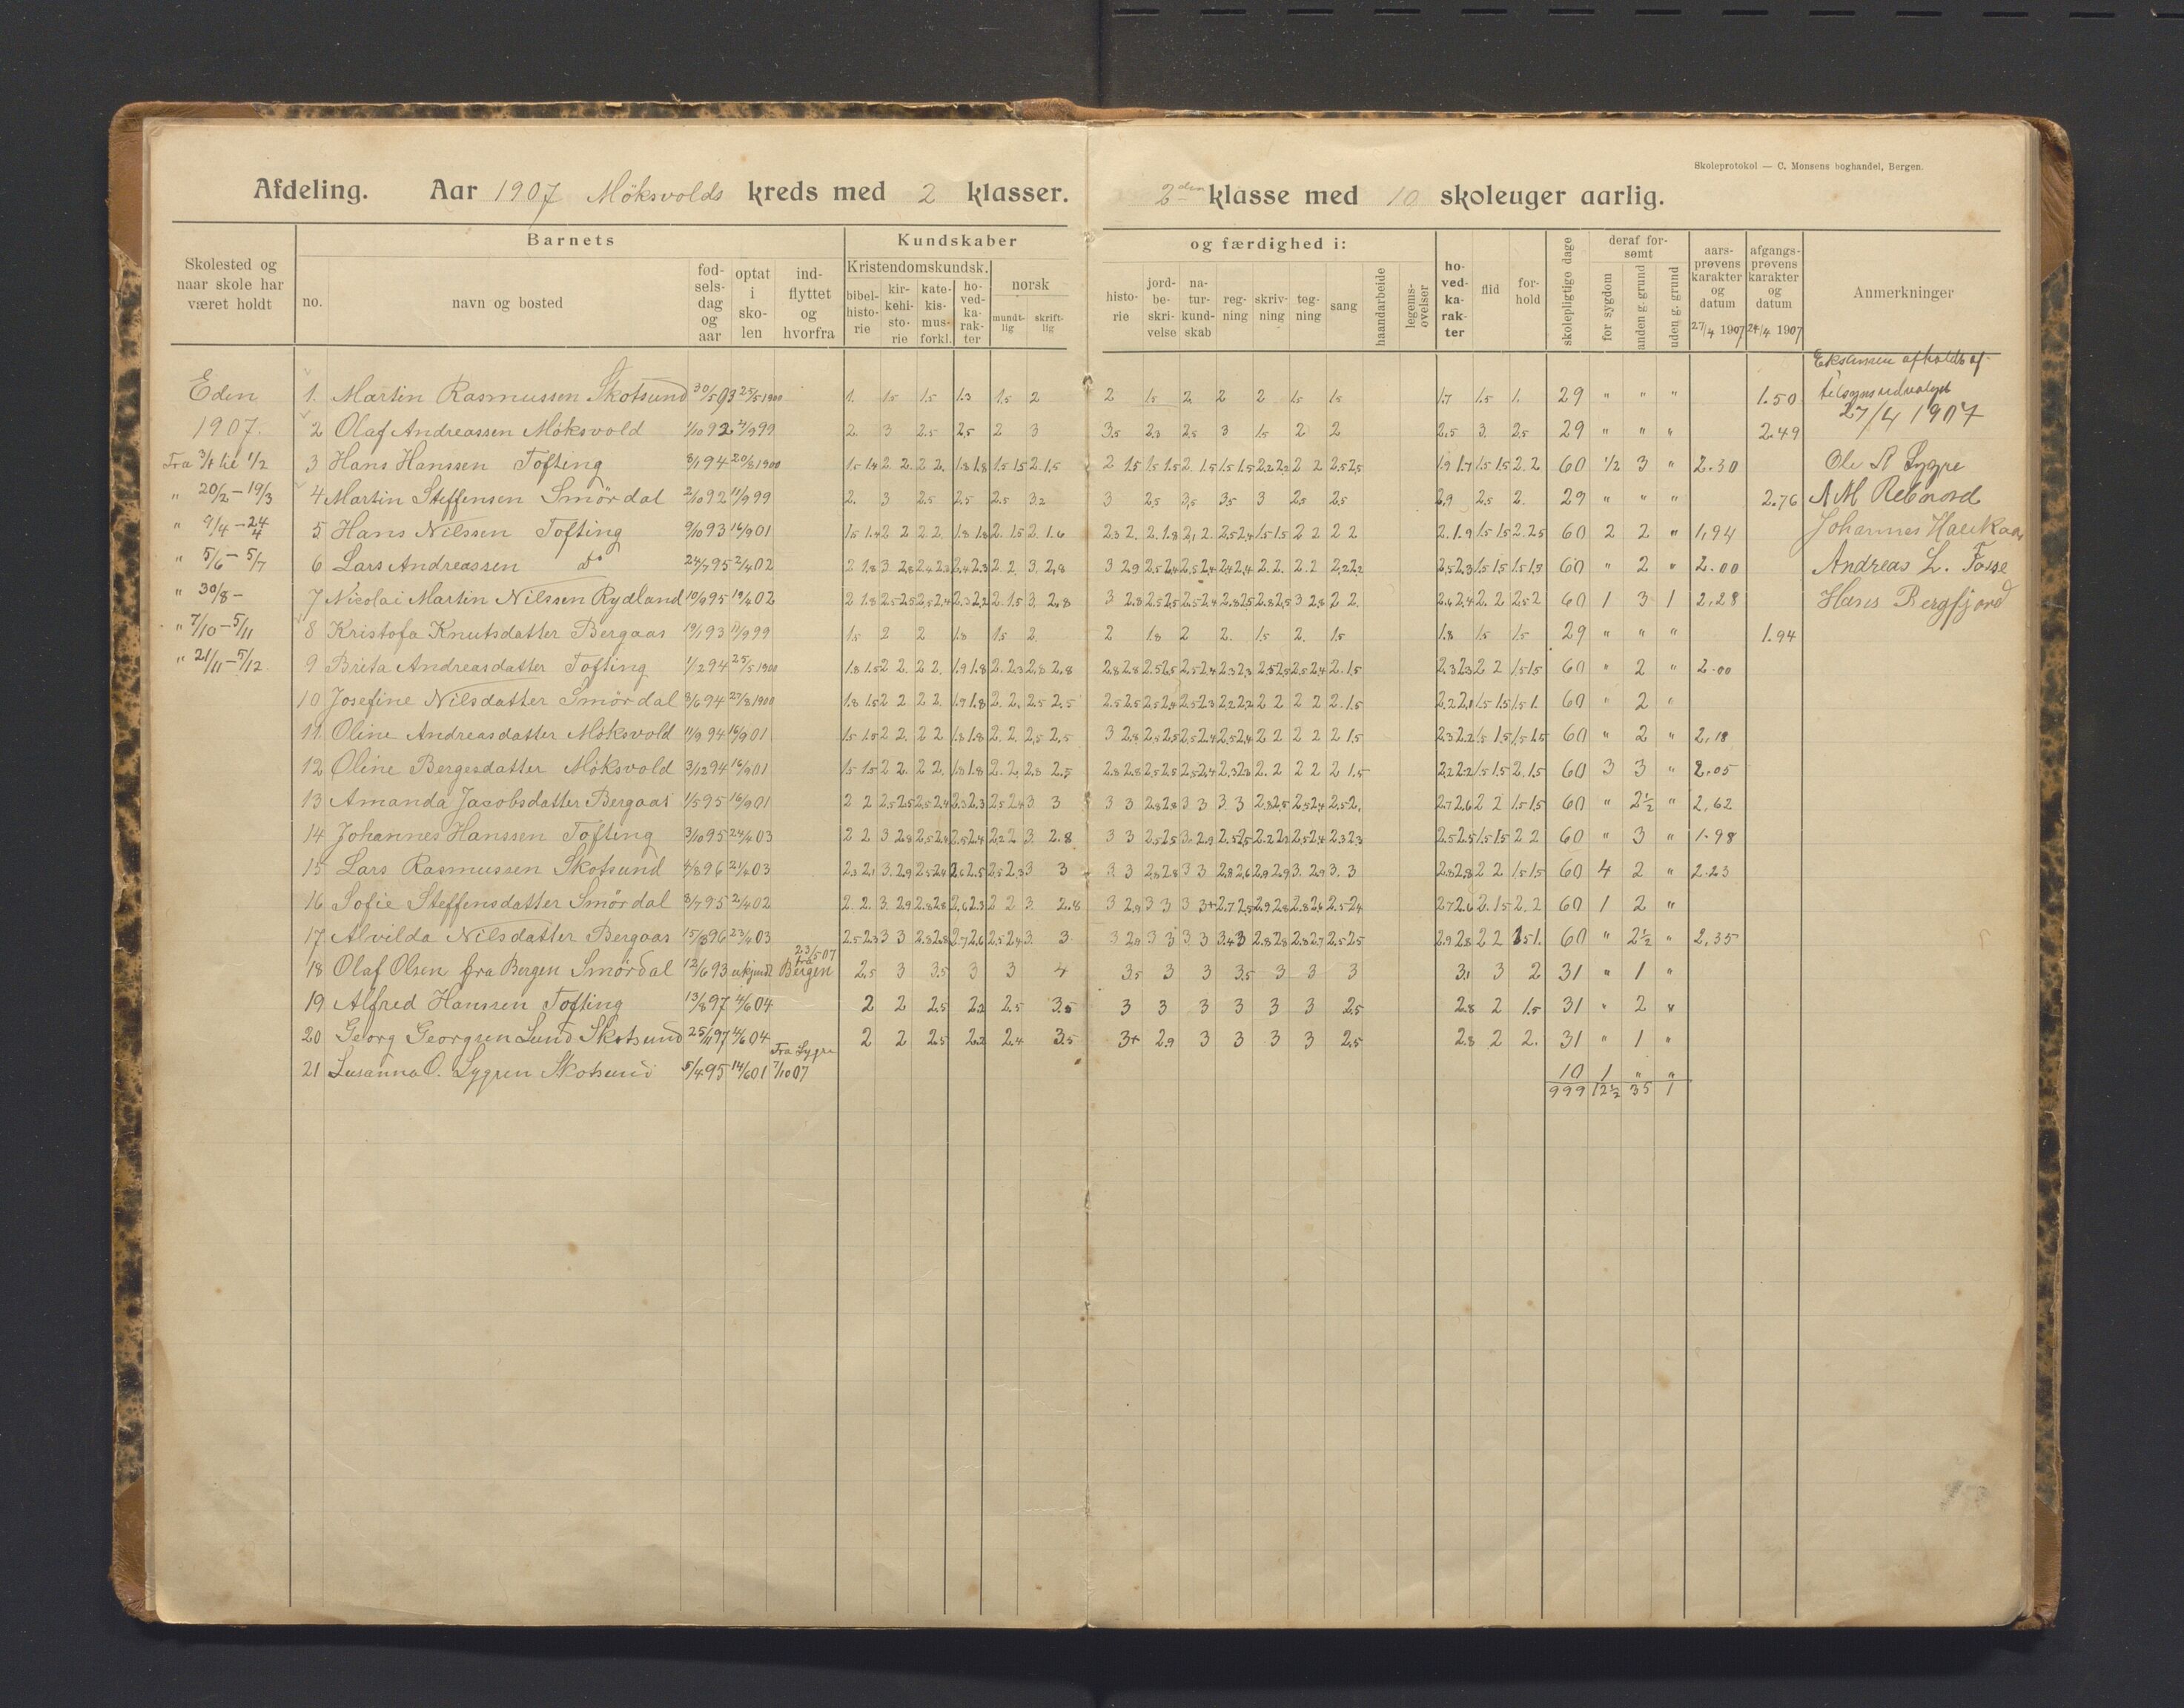 Skoleprotokol — C. Monsens boghandel, Bergen.
Afdeling. Aar 1907 Möksvolds kreds med 2 klasser. 2den klasse med 10 skoleuger aarlig.
Skolested og naar skole har været holdt
Barnets
no.
navn og bosted
fød- sels- dag og aar
optat i sko- len
ind- flyttet og hvorfra
Kundskaber
Kristendomskundsk.
bibel- histo- rie
kir- kehi- sto- rie
kate- kis- mus- forkl.
ho- ved- ka- rak- ter
norsk
mundt- lig
skrift- lig
og færdighed i:
histo- rie
jord- be- skri- velse
na- tur- kund- skab
reg- ning
skriv- ning
teg- ning
sang
haandarbeide
legems- øvelser
ho- ved- ka- rak- ter
flid
for- hold
skolepligtige dage
deraf for- sømt
for sygdom
anden g. grund
uden g. grund
aars- prøvens karakter og datum 27/4 1907
afgangs- prøvens karakter og datum 27/4 1907
Anmerkninger
Eden
1907.
Fra 3/1 til 1/2
" 20/2 - 19/3
" 9/4 - 24/4
" 5/6 - 5/7
" 30/8 -
" 7/10 - 5/11
" 21/11 - 5/12.
1. Martin Rasmussen Skotsund 30/5 93 25/5 1900 1. 1.5 1.5 1.3 1.5 2 2 1.5 2 2 2 1.5 1.5 1.7 1.5 1. 29 " " " 1.50
2 Olaf Andreassen Möksvold 1/10 92 4/9 99 2. 3 2.5 2.5 2 3 3.5 2.3 2.5 3 1.5 2 2 2.5 3. 2.5 29 " " " 2.49
3 Hans Hanssen Tofting 8/1 94 20/8 1900 1.5 1.4 2. 2. 2 2. 1.8 1.8 1.5 1.5 2. 1.5 2 1.5 1.5 1.5 2. 1.5 1.5 1.5 2.2 2.2 2 2 2.5 2.5 1.9 1.7 1.5 1.5 2. 2. 60 1/2 3 " 2.30
4 Martin Steffensen Smördal 2/10 92 11/9 99 2. 3 2.5 2.5 2.5 3.2 3 2.5 3.5 3.5 3 2.5 2.5 2.9 2.5 2. 29 " " " 2.76
5 Hans Nilssen Tofting 9/10 93 16/9 01 1.5 1.4 2 2 2 2. 1.8 1.8 2. 1.5 2. 1.6 2.3 2. 2. 1.8 2.1 2. 2.5 2.4 1.5 1.5 2 2 2 2 2. 1.9 1.5 1.5 2. 2.5 60 2 2 " 1.94
6 Lars Andreassen do 24/7 95 2/4 02 2 1.8 3 2.8 2.4 2.3 2.4 2.3 2. 2. 3. 2.8 3 2.9 2.5 2.4 2.5 2.4 2.4 2.4 2. 2. 2. 2 2.2 2.2 2.5 2.3 1.5 1.5 1.5 1.5 60 " 2 " 2.00
7 Nicolai Martin Nilssen Rydland 10/9 95 19/4 02 2 1.8 2.5 2.5 2.5 2.4 2.3 2.2 2. 1.5 3. 2.8 3 2.8 2.5 2.5 2.5 2.4 2.8 2.5 2.8 2.5 3 2.8 2 2. 2.6 2.4 2. 2 2.5 2 60 1 3 1 2.28
8 Kristofa Knutsdatter Bergaas 19/1 93 11/9 99 1.5 2 2 1.8 1.5 2. 2 1.8 2 2. 1.5 2. 1.5 1.8 1.5 1.5 29 " " " 1.94
9 Brita Andreasdatter Tofting 1/2 94 25/5 1900 1.8 1.5 2 2. 2 2. 1.9 1.8 2. 2.3 2.8 2.8 2.8 2.8 2.5 2.5 2.5 2.4 2.3 2.3 2.5 2.5 2.5 2.4 2. 1.5 2.3 2.3 2 2 1.5 1.5 60 " 2 " 2.00
10 Josefine Nilsdatter Smördal 8/6 94 27/8 1900 1.8 1.5 2 2. 2 2. 1.9 1.8 2. 2. 2.5 2.5 2.5 2.5 2.5 2.4 2.5 2.3 2.2 2.2 2 2 2 2 2. 1.5 2.2 2.1 1.5 1.5 1.5 1. 60 " 2 "
11 Oline Andreasdatter Möksvold 11/9 94 16/9 01 1.5 1.5 2 2. 2 2 1.8 1.8 2. 2. 2.5 2.5 3 2.8 2.5 2.5 2.5 2.4 2.5 2.4 2 2 2 2 2 1.5 2.3 2.2 1.5 1.5 1.5 1.5 60 " 2 " 2.18
12 Oline Bergesdatter Möksvold 3/12 94 16/9 01 1.5 1.5 2 2. 2 2. 1.8 1.8 2. 2. 2.8 2.5 2.8 2.8 2.5 2.5 2.5 2.4 2.3 2.3 2. 2 2 2 2 1.5 2.2 2.2 1.5 1.5 2. 1.5 60 3 3 " 2.05
13 Amanda Jacobsdatter Bergaas 1/5 95 16/9 01 2 2 2.5 2.5 2.5 2.4 2.3 2.3 2.5 2.4 3 3 3 3 2.8 2.8 3 3 3. 3 2.8 2.5 2.5 2.4 2.5 2. 2.7 2.6 2 2 1.5 1.5 60 " 2½ " 2.62
14 Johannes Hanssen Tofting 3/10 95 24/4 03 2 2 3 2.8 2.5 2.4 2.5 2.4 2.2 2 3. 2.8 3 3 2.5 2.5 3. 2.9 2.5 2.5 2.2 2.2 2.5 2.4 2.3 2.3 2.5 2.5 1.5 1.5 2 2 60 " 3 " 1.98
15 Lars Rasmussen Skotsund 4/8 96 21/4 03 2.3 2.1 3. 2.9 2.5 2.4 2.6 2.5 2.5 2.3 3 3 3 3 2.8 2.8 3 3 2.8 2.6 2.9 2.9 3. 2.9 3. 3 2.8 2.8 2 2 1.5 1.5 60 4 2 " 2.23
16 Sofie Steffensdatter Smördal 3/7 95 2/4 02 2. 2. 3. 2.9 2.8 2.8 2.6 2.3 2 2 3. 2.8 3 2.9 3 3 3 3+ 2.7 2.5 2.9 2.8 2.8 2.6 2.5 2.4 2.7 2.6 2. 1.5 2. 2 60 1 2 "
17 Alvilda Nilsdatter Bergaas 15/8 96 23/4 03 2.5 2.3 3 3 2.8 2.8 2.7 2.6 2.5 2.4 3. 3 3 2.9 3 3 3. 3 3.4 3 2.8 2.8 2.8 2.7 2.5 2.5 2.9 2.8 2 2 1.5 1. 60 " 2½ " 2.35
18 Olaf Olsen fra Bergen Smördal 12/6 93 ukjendt 23/5 07 fra Bergen 2.5 3 3.5 3 3 4 3.5 3 3 3.5 3 3 3 3.1 3 2 31 " 1 "
19 Alfred Hanssen Tofting 13/8 97 4/6 04 2 2 2.5 2.2 2.5 3.5 3 3 3 3 3 3 2.5 2.8 2 1.5 31 " 2 "
20 Georg Georgsen Lund Skotsund 25/11 97 4/6 04 2 2 2.5 2.2 2.4 3.5 3+ 2.9 3 3 3 3 2.5 2.8 2 2. 31 " 1 "
21 Susanna O. Lygren Skotsund 5/4 95 14/6 01 Fra Lygre 7/10 07 10 1 " "
999 12½ 35 1
Eksamen afholdt af
tilsynsudvalget
27/4 1907
Ole A Lygre
A M Rebnord
Johannes Haukaas
Andreas L. Fosse
Hans Bergfjord